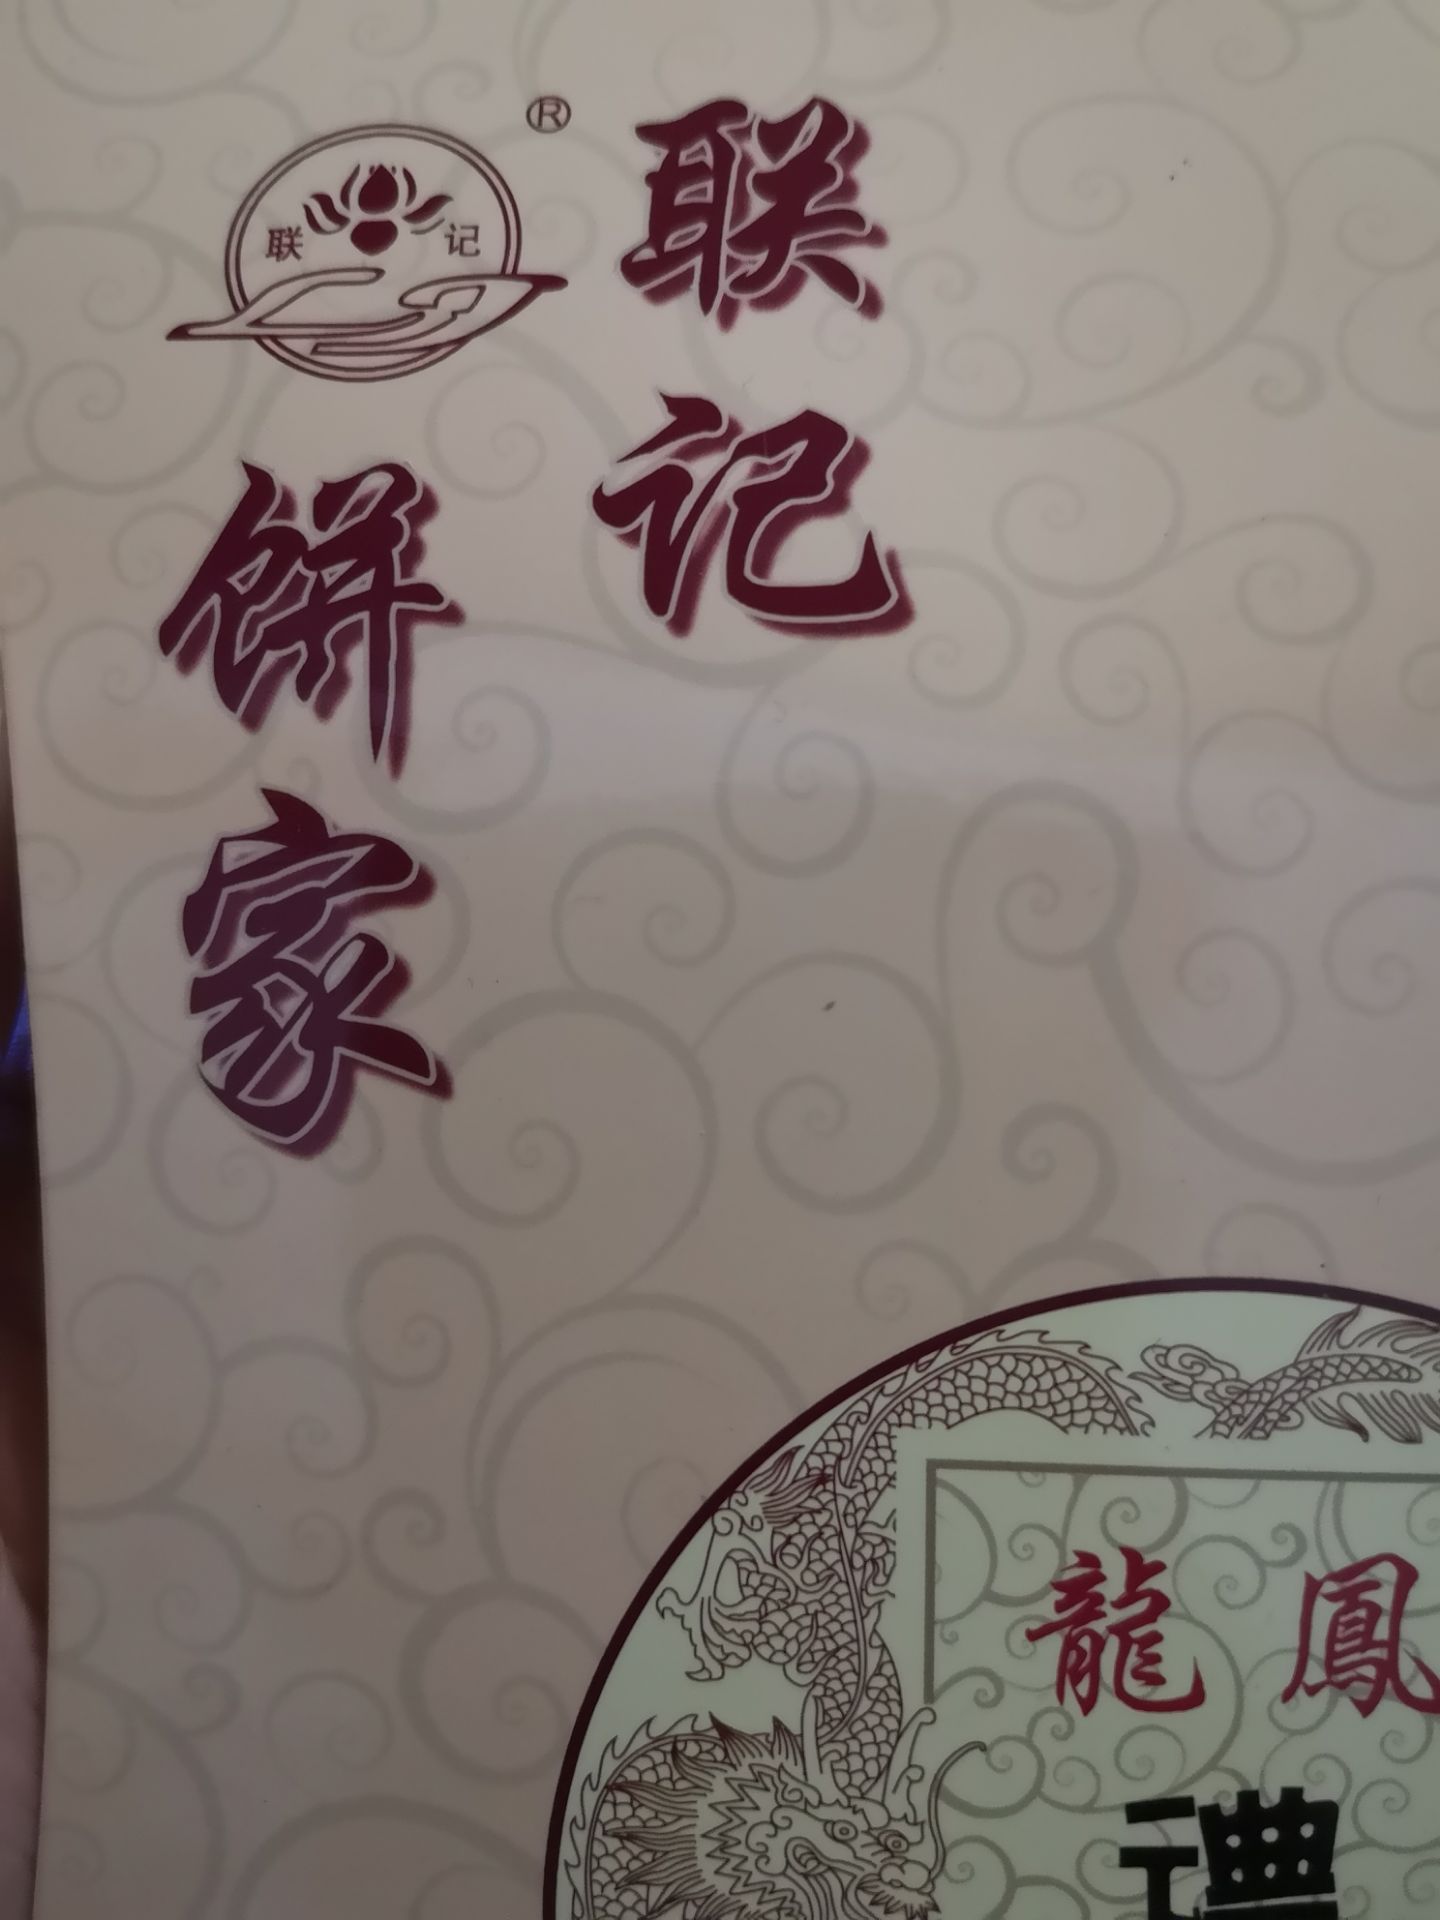 联记
饼家
联 记
®
龍鳳
禮